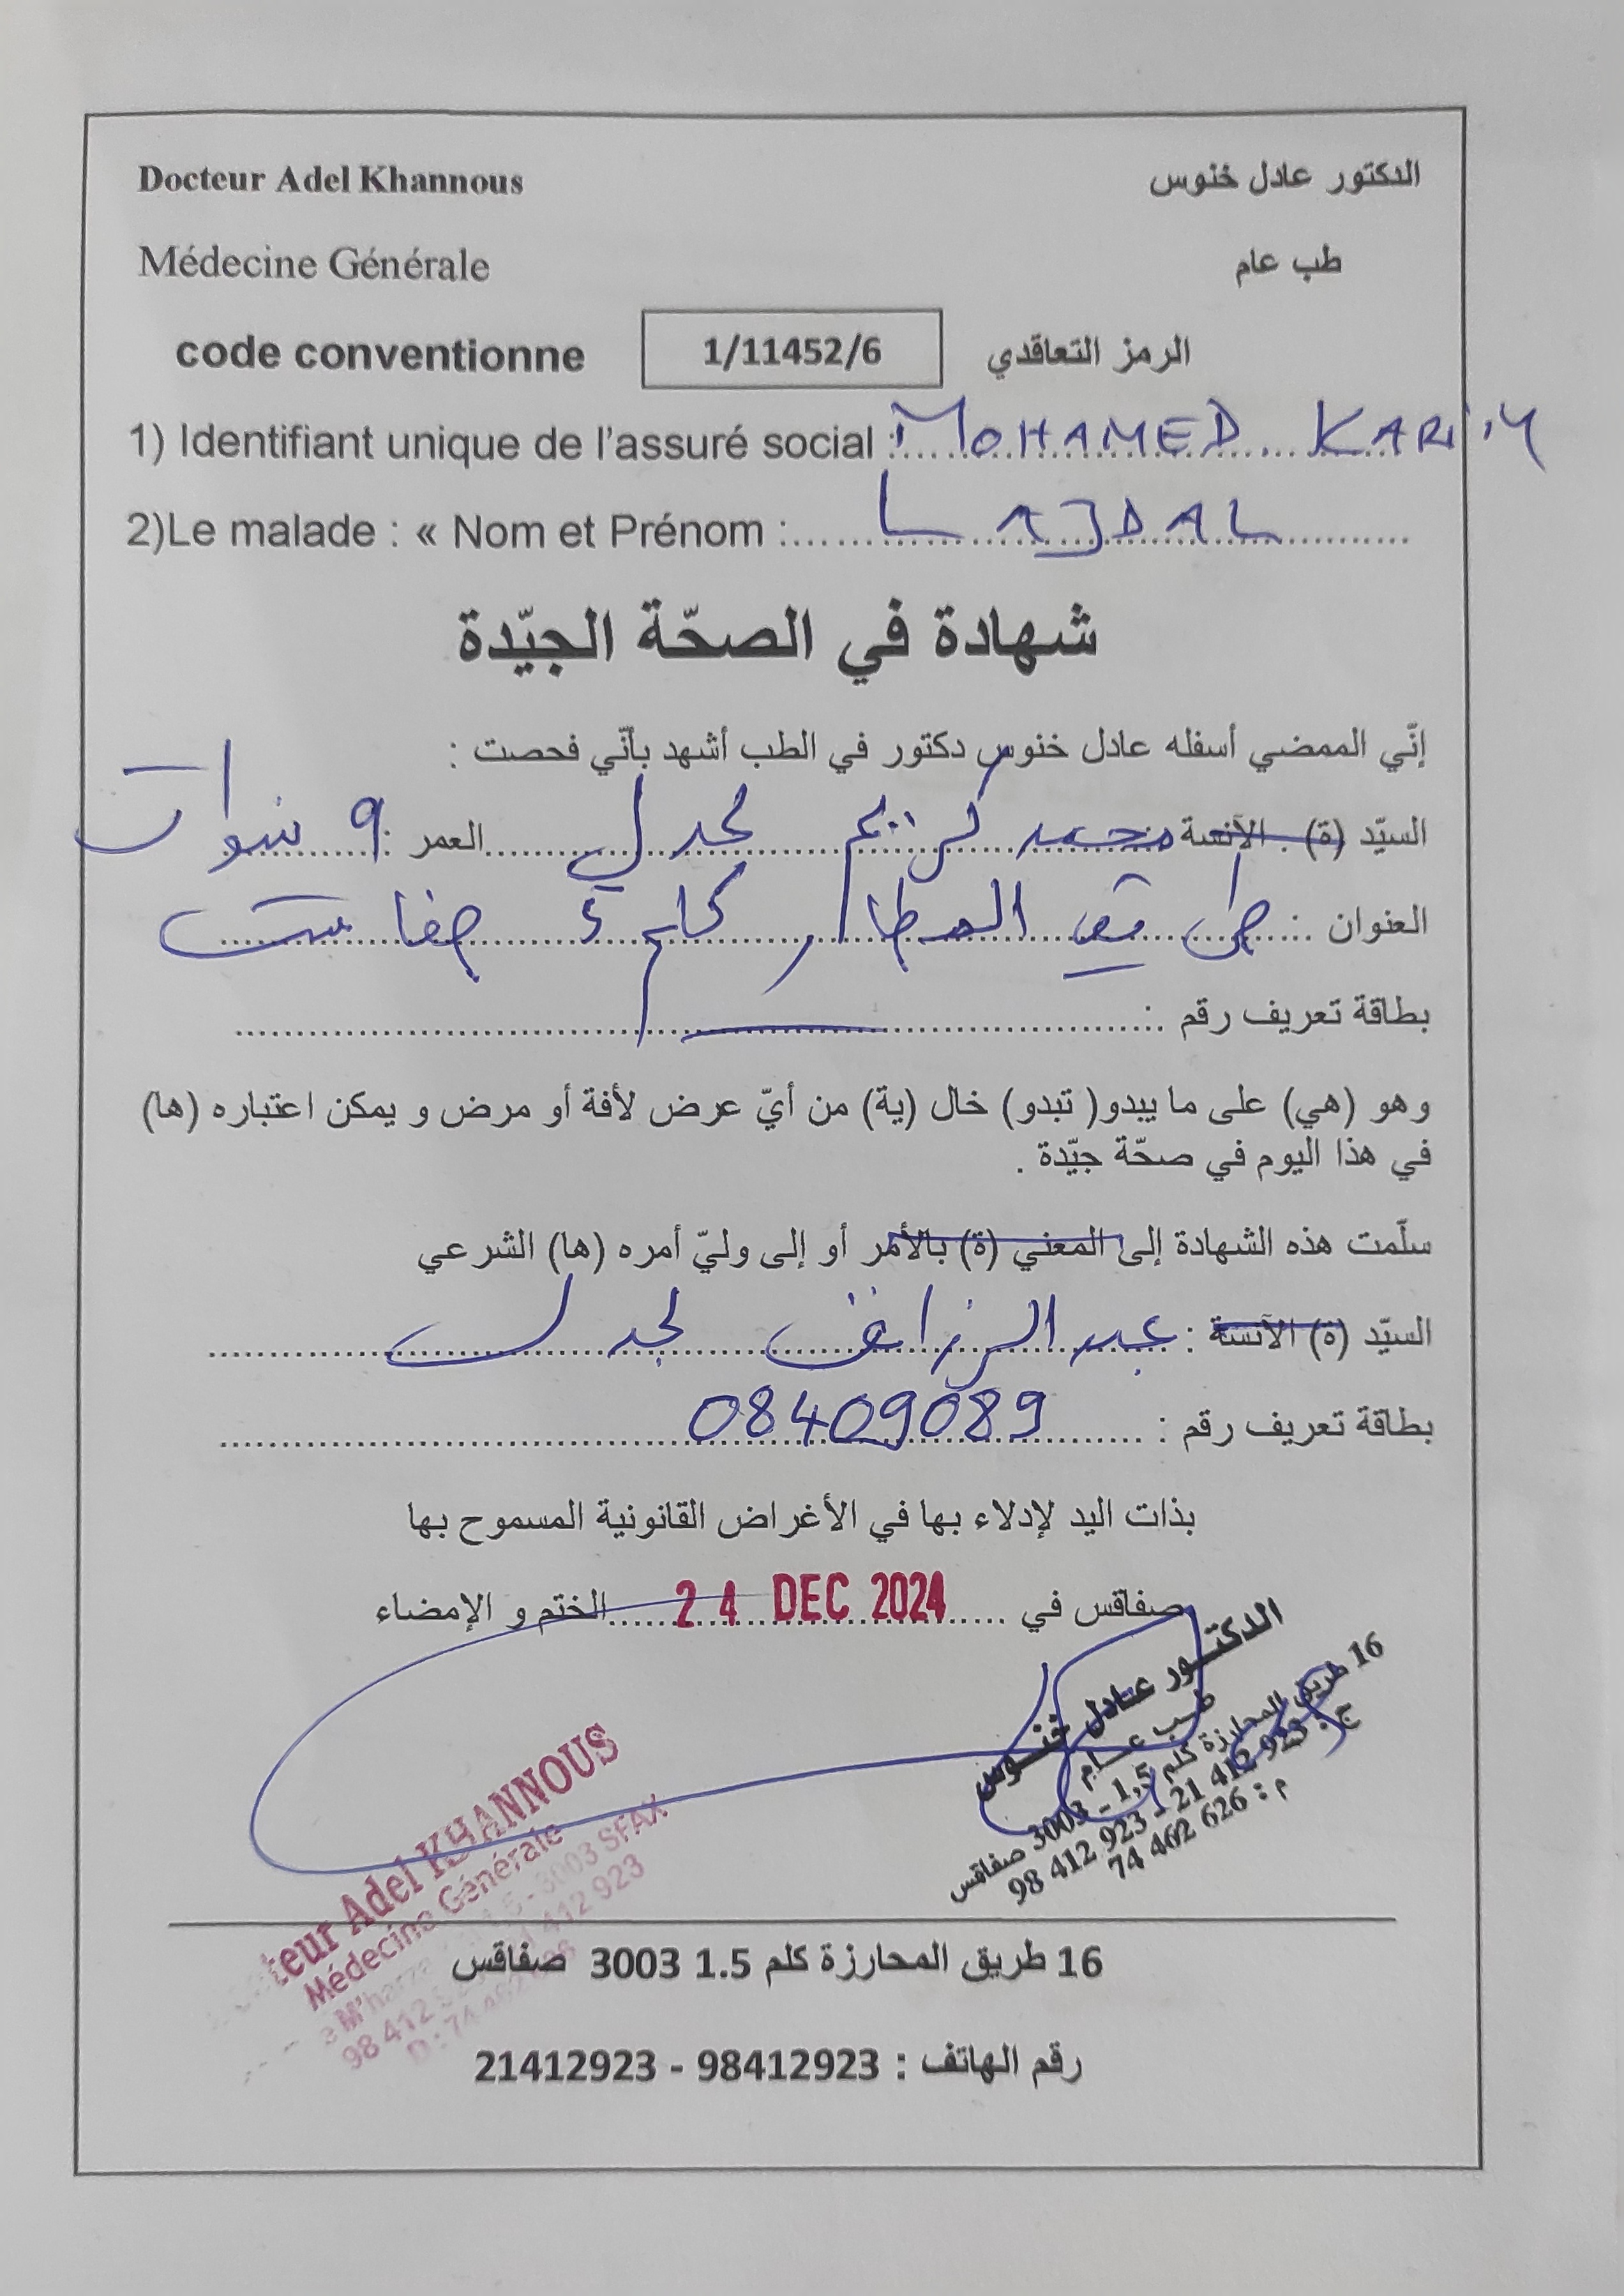 Docteur Adel Khannous الدكتور عادل خنوس
Médecine Générale طب عام
code conventionne 1/11452/6 الرمز التعاقدي
1) Identifiant unique de l'assuré social : MOHAMED KARIM
2)Le malade : « Nom et Prénom : LAJDAL
شهادة في الصحّة الجيّدة
إنّي الممضي أسفله عادل خنوس دكتور في الطب أشهد بأنّي فحصت :
السيّد (ة) . الآنسة محمد كريم لجدل العمر : 9 سنوات
العنوان : طريق المطار كلم 5 صفاقس
بطاقة تعريف رقم :
وهو (هي) على ما يبدو( تبدو) خال (ية) من أيّ عرض لأفة أو مرض و يمكن اعتباره (ها)
في هذا اليوم في صحّة جيّدة .
سلّمت هذه الشهادة إلى المعني (ة) بالأمر أو إلى وليّ أمره (ها) الشرعي
السيّد (ة) الآنسة : عبد الرزاق لجدل
بطاقة تعريف رقم : 08409089
بذات اليد لإدلاء بها في الأغراض القانونية المسموح بها
صفاقس في 24 DEC 2024 الختم و الإمضاء
الدكتور عادل خنوس
طب عام
16 طريق المحارزة كلم 1,5 - 3003 صفاقس
ج : 98 412 923 - 21 412 923
م : 74 462 626
Adel KHANNOUS
Médecine Générale
3003 SFAX
16 طريق المحارزة كلم 1.5 3003 صفاقس
رقم الهاتف : 98412923 - 21412923